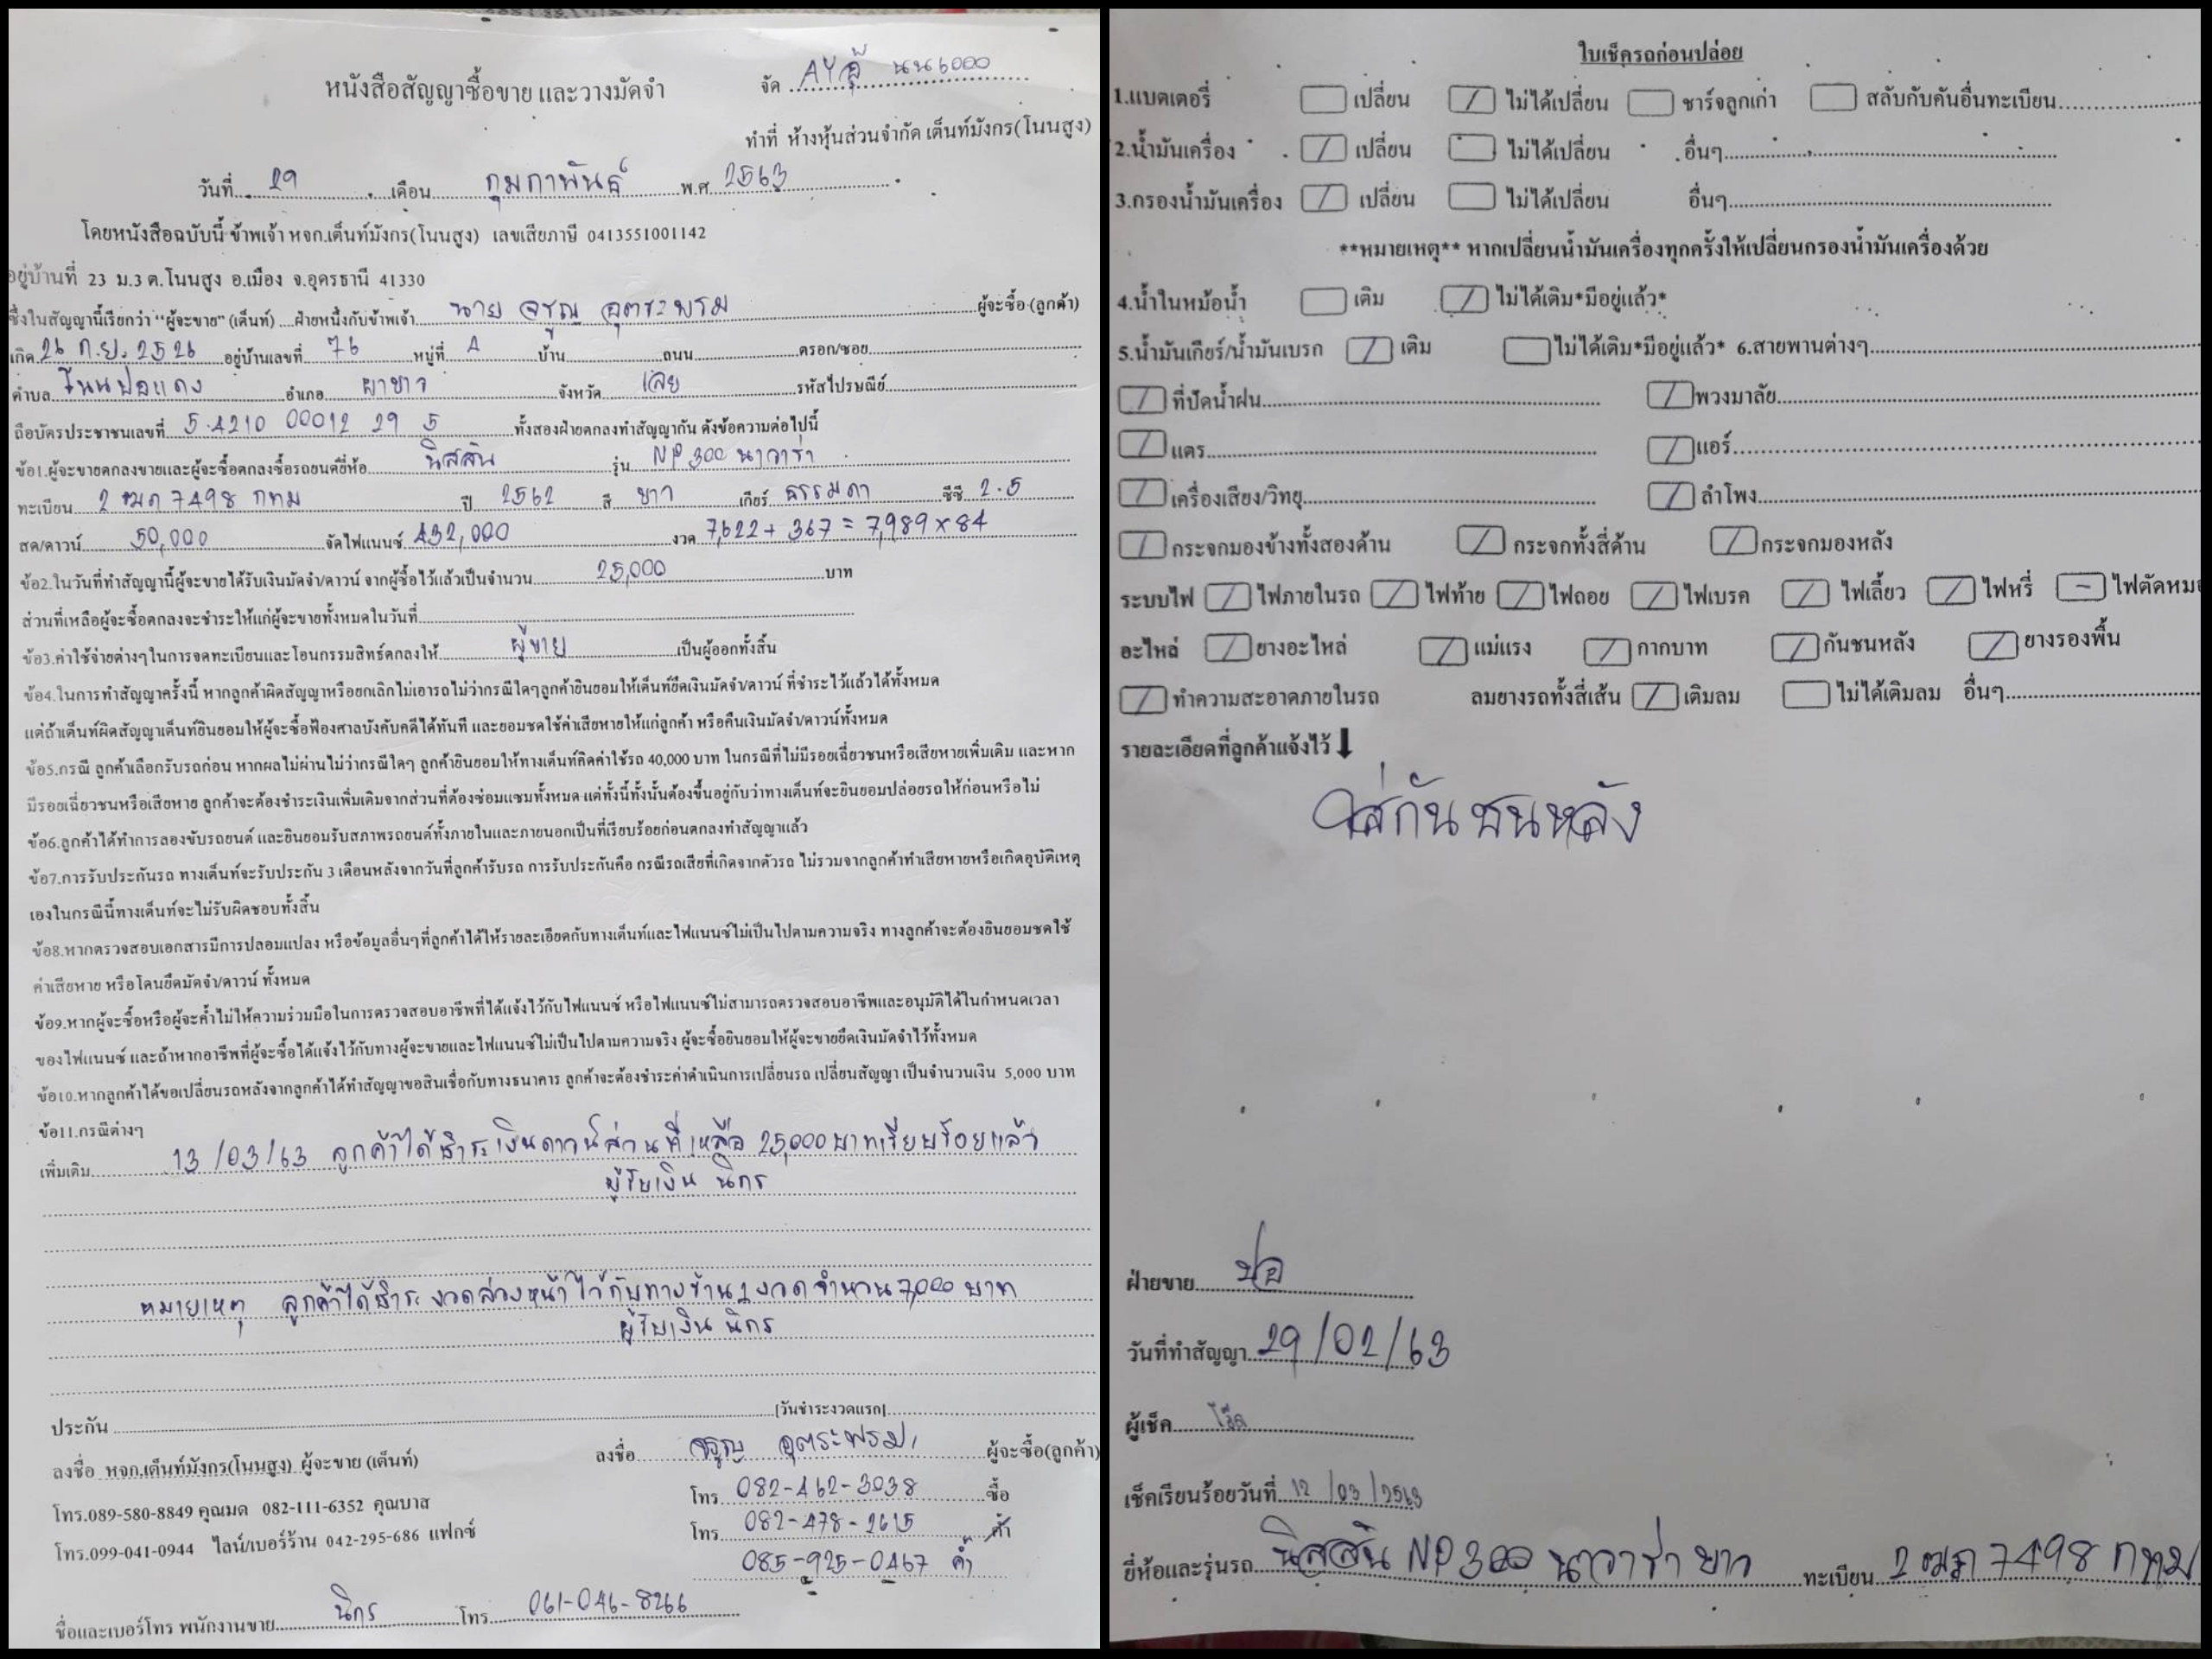 หนังสือสัญญาซื้อขาย และวางมัดจำ
จัด AY
ทำที่ ห้างหุ้นส่วนจำกัด เต็นท์มังกร(โนนสูง)
วันที่ 29 เดือน กุมภาพันธ์ พ.ศ. 2563
โดยหนังสือฉบับนี้ ข้าพเจ้า หจก.เต็นท์มังกร(โนนสูง) เลขเสียภาษี 0413551001142
อยู่บ้านที่ 23 ม.3 ต.โนนสูง อ.เมือง จ.อุดรธานี 41330
ซึ่งในสัญญานี้เรียกว่า "ผู้จะขาย" (เต็นท์) ....ฝ่ายหนึ่งกับข้าพเจ้า นาย จรูญ อุตระพรม ผู้จะซื้อ (ลูกค้า)
เกิด 26 ก.ย. 2526 อยู่บ้านเลขที่ 76 หมู่ที่ 4 บ้าน ถนน ตรอก/ซอย
ตำบล โนนปอแดง อำเภอ ผาขาว จังหวัด เลย รหัสไปรษณีย์
ถือบัตรประชาชนเลขที่ 5 4210 00012 29 5 ทั้งสองฝ่ายตกลงทำสัญญากัน ดังข้อความต่อไปนี้
ข้อ1.ผู้จะขายตกลงขายและผู้จะซื้อตกลงซื้อรถยนต์ยี่ห้อ นิสสัน รุ่น NP 300 นาวาร่า
ทะเบียน 2 ฒภ 7498 กทม ปี 2562 สี ขาว เกียร์ ธรรมดา ซีซี 2.5
สด/ดาวน์ 50,000 จัดไฟแนนซ์ 432,000 งวด 7,622 + 367 = 7,989 x 84
ข้อ2.ในวันที่ทำสัญญานี้ผู้จะขายได้รับเงินมัดจำ/ดาวน์ จากผู้ซื้อไว้แล้วเป็นจำนวน 25,000 บาท
ส่วนที่เหลือผู้จะซื้อตกลงจะชำระให้แก่ผู้จะขายทั้งหมดในวันที่
ข้อ3.ค่าใช้จ่ายต่างๆในการจดทะเบียนและโอนกรรมสิทธ์ตกลงให้ ผู้ขาย เป็นผู้ออกทั้งสิ้น
ข้อ4.ในการทำสัญญาครั้งนี้ หากลูกค้าผิดสัญญาหรือยกเลิกไม่เอารถไม่ว่ากรณีใดๆลูกค้ายินยอมให้เต็นท์ยึดเงินมัดจำ/ดาวน์ ที่ชำระไว้แล้วได้ทั้งหมด
แต่ถ้าเต็นท์ผิดสัญญาเต็นท์ยินยอมให้ผู้จะซื้อฟ้องศาลบังคับคดีได้ทันที และยอมชดใช้ค่าเสียหายให้แก่ลูกค้า หรือคืนเงินมัดจำ/ดาวน์ทั้งหมด
ข้อ5.กรณี ลูกค้าเลือกรับรถก่อน หากผลไม่ผ่านไม่ว่ากรณีใดๆ ลูกค้ายินยอมให้ทางเต็นท์คิดค่าใช้รถ 40,000 บาท ในกรณีที่ไม่มีรอยเฉี่ยวชนหรือเสียหายเพิ่มเติม และหาก
มีรอยเฉี่ยวชนหรือเสียหาย ลูกค้าจะต้องชำระเงินเพิ่มเติมจากส่วนที่ต้องซ่อมแซมทั้งหมด แต่ทั้งนี้ทั้งนั้นต้องขึ้นอยู่กับว่าทางเต็นท์จะยินยอมปล่อยรถให้ก่อนหรือไม่
ข้อ6.ลูกค้าได้ทำการลองขับรถยนต์ และยินยอมรับสภาพรถยนต์ทั้งภายในและภายนอกเป็นที่เรียบร้อยก่อนตกลงทำสัญญาแล้ว
ข้อ7.การรับประกันรถ ทางเต็นท์จะรับประกัน 3 เดือนหลังจากวันที่ลูกค้ารับรถ การรับประกันคือ กรณีรถเสียที่เกิดจากตัวรถ ไม่รวมจากลูกค้าทำเสียหายหรือเกิดอุบัติเหตุ
เองในกรณีนี้ทางเต็นท์จะไม่รับผิดชอบทั้งสิ้น
ข้อ8.หากตรวจสอบเอกสารมีการปลอมแปลง หรือข้อมูลอื่นๆที่ลูกค้าได้ให้รายละเอียดกับทางเต็นท์และไฟแนนซ์ไม่เป็นไปตามความจริง ทางลูกค้าจะต้องยินยอมชดใช้
ค่าเสียหาย หรือโดนยึดมัดจำ/ดาวน์ ทั้งหมด
ข้อ9.หากผู้จะซื้อหรือผู้จะค้ำไม่ให้ความร่วมมือในการตรวจสอบอาชีพที่ได้แจ้งไว้กับไฟแนนซ์ หรือไฟแนนซ์ไม่สามารถตรวจสอบอาชีพและอนุมัติได้ในกำหนดเวลา
ของไฟแนนซ์ และถ้าหากอาชีพที่ผู้จะซื้อได้แจ้งไว้กับทางผู้จะขายและไฟแนนซ์ไม่เป็นไปตามความจริง ผู้จะซื้อยินยอมให้ผู้จะขายยึดเงินมัดจำไว้ทั้งหมด
ข้อ10.หากลูกค้าได้ขอเปลี่ยนรถหลังจากลูกค้าได้ทำสัญญาขอสินเชื่อกับทางธนาคาร ลูกค้าจะต้องชำระค่าดำเนินการเปลี่ยนรถ เปลี่ยนสัญญา เป็นจำนวนเงิน 5,000 บาท
ข้อ11.กรณีต่างๆ
เพิ่มเติม 13 /03/63 ลูกค้าได้ชำระเงินดาวน์ส่วนที่เหลือ 25,000 บาทเรียบร้อยแล้ว
ผู้รับเงิน นิกร
หมายเหตุ ลูกค้าได้ชำระงวดล่วงหน้าไว้กับทางร้าน 1 งวด จำนวน 7,000 บาท
ผู้รับเงิน นิกร
ประกัน [วันชำระงวดแรก]
ลงชื่อ หจก.เต็นท์มังกร(โนนสูง) ผู้จะขาย (เต็นท์) ลงชื่อ จรูญ อุตระพรม ผู้จะซื้อ(ลูกค้า)
โทร.089-580-8849 คุณมด 082-111-6352 คุณบาส โทร 082-462-3038 ซื้อ
โทร.099-041-0944 ไลน์/เบอร์ร้าน 042-295-686 แฟกซ์ โทร 082-478-2615 ค้ำ
085-925-0467 ค้ำ
ชื่อและเบอร์โทร พนักงานขาย นิกร โทร 061-046-8266
ใบเช็ครถก่อนปล่อย
1.แบตเตอรี่ เปลี่ยน / ไม่ได้เปลี่ยน ชาร์จลูกเก่า สลับกับคันอื่นทะเบียน
2.น้ำมันเครื่อง / เปลี่ยน ไม่ได้เปลี่ยน อื่นๆ
3.กรองน้ำมันเครื่อง / เปลี่ยน ไม่ได้เปลี่ยน อื่นๆ
**หมายเหตุ** หากเปลี่ยนน้ำมันเครื่องทุกครั้งให้เปลี่ยนกรองน้ำมันเครื่องด้วย
4.น้ำในหม้อน้ำ เติม / ไม่ได้เติม*มีอยู่แล้ว*
5.น้ำมันเกียร์/น้ำมันเบรก / เติม ไม่ได้เติม*มีอยู่แล้ว* 6.สายพานต่างๆ
/ ที่ปัดน้ำฝน / พวงมาลัย
/ แตร / แอร์
/ เครื่องเสียง/วิทยุ / ลำโพง
/ กระจกมองข้างทั้งสองด้าน / กระจกทั้งสี่ด้าน / กระจกมองหลัง
ระบบไฟ / ไฟภายในรถ / ไฟท้าย / ไฟถอย / ไฟเบรค / ไฟเลี้ยว / ไฟหรี่ - ไฟตัดหมอ
อะไหล่ / ยางอะไหล่ / แม่แรง / กากบาท / กันชนหลัง / ยางรองพื้น
/ ทำความสะอาดภายในรถ ลมยางรถทั้งสี่เส้น / เติมลม ไม่ได้เติมลม อื่นๆ
รายละเอียดที่ลูกค้าแจ้งไว้ ⬇
ใส่กันชนหลัง
ฝ่ายขาย ปอ
วันที่ทำสัญญา 29/02/63
ผู้เช็ค
เช็คเรียบร้อยวันที่ 12 /03/2563
ยี่ห้อและรุ่นรถ นิสสัน NP 300 นาวาร่า ขาว ทะเบียน 2 ฒภ 7498 กทม